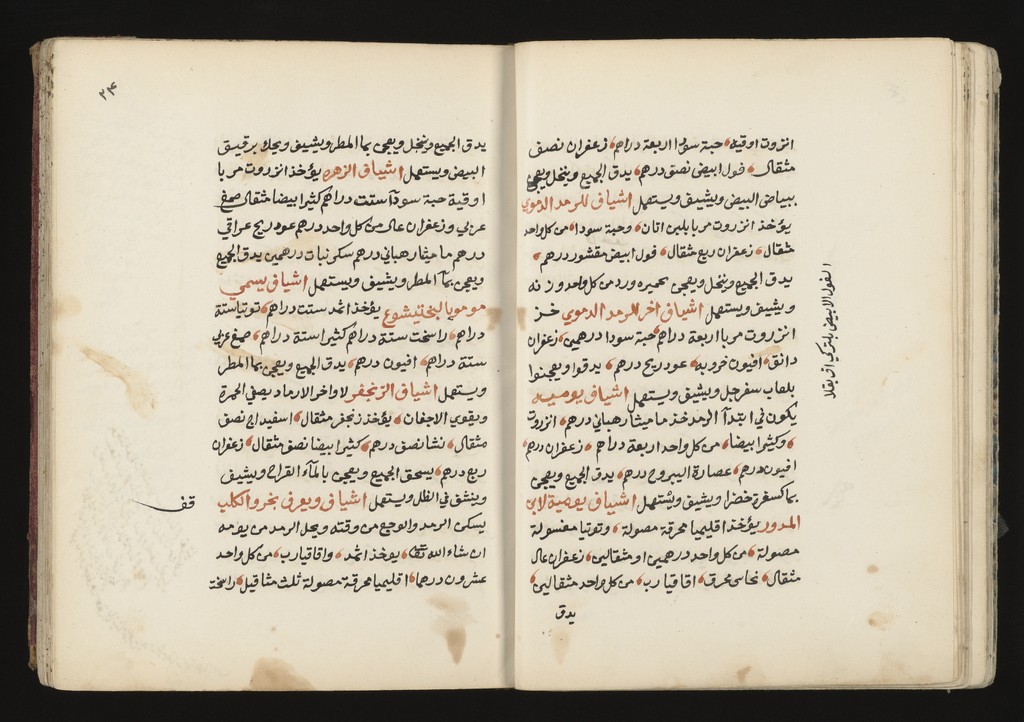 انزروت اوقيه حبة سودا اربعة دراهم زعفران نصف
مثقال فول ابيض نصف درهم يدق الجميع وينخل ويعجن
ببياض البيض ويشيف ويستعمل اشياف للرمد الدموي
يؤخذ انزروت مربا بلبن اتان وحبة سودا من كل واحد
مثقال زعفران ربع مثقال فول ابيض مقشور درهم
يدق الجميع وينخل ويعجن بخميره ورد من كل واحد وزنه
ويشيف ويستعمل اشياف اخر للرمد الدموي خذ
انزروت مربا اربعة دراهم حبة سودا درهمين زعفران
دانق افيون خروبه عود ريح درهم يدقوا ويعجنوا
بلعاب سفرجل ويشيف ويستعمل اشياف يوميه
يكون في ابتدآ الرمد خذ ماميثا رهباني درهم انزروت
وكثيرا بيضا من كل واحد اربعة دراهم زعفران درهم
افيون درهم عصارة اليبروح درهم يدق الجميع ويعجن
بماكسفرة خضرا ويشيف ويستعمل اشياف يومية لابن
المدور يؤخذ اقليميا محرقة مصولة وتوتيا مغسولة
مصولة من كل واحد درهمين او مثقالين زعفران عال
مثقال نحاس محرق اقاقيا رب من كل واحد مثقالين
يدق
٢٤
يدق الجميع وينخل ويعجن بما المطر ويشيف ويحك برقيق
البيض ويستعمل اشياف الزهره يؤخذ انزروت مربا
اوقية حبة سودآ ستت دراهم كثيرا بيضا مثقال صمغ
عربي وزعفران عال من كل واحد درهم عود ريح عراقي
درهم ماميثا رهباني درهم سكر نبات درهمين يدق الجميع
ويعجن بمآ المطر ويشيف ويستعمل اشياف يسمى
موموبا لبختيشوع يؤخذ اثمد ستت دراهم توتيا ستة
دراهم راسخت ستة دراهم كثيرا ستة دراهم صمغ عربي
ستة دراهم افيون درهم يدق الجميع ويعجن بما المطر
ويستعمل اشياف الزنجفر لاواخر الارماد يصفي الحمرة
ويقوي الاجفان يؤخذ زنجفر مثقال اسفيداج نصف
مثقال نشا نصف درهم كثيرا بيضا نصف مثقال زعفران
ربع درهم يسحق الجميع ويعجن بالمآء القراح ويشيف
وينشف في الظل ويستعمل اشياف ويعرف بخرو الكلب
يسكن الرمد والوجع من وقته ويحل الرمد من يومه
ان شاء الله تعا يوخذ اثمد واقاقيا رب من كل واحد
عشرون درهما اقليميا محرقة مصولة ثلث مثاقيل راسخت
قف